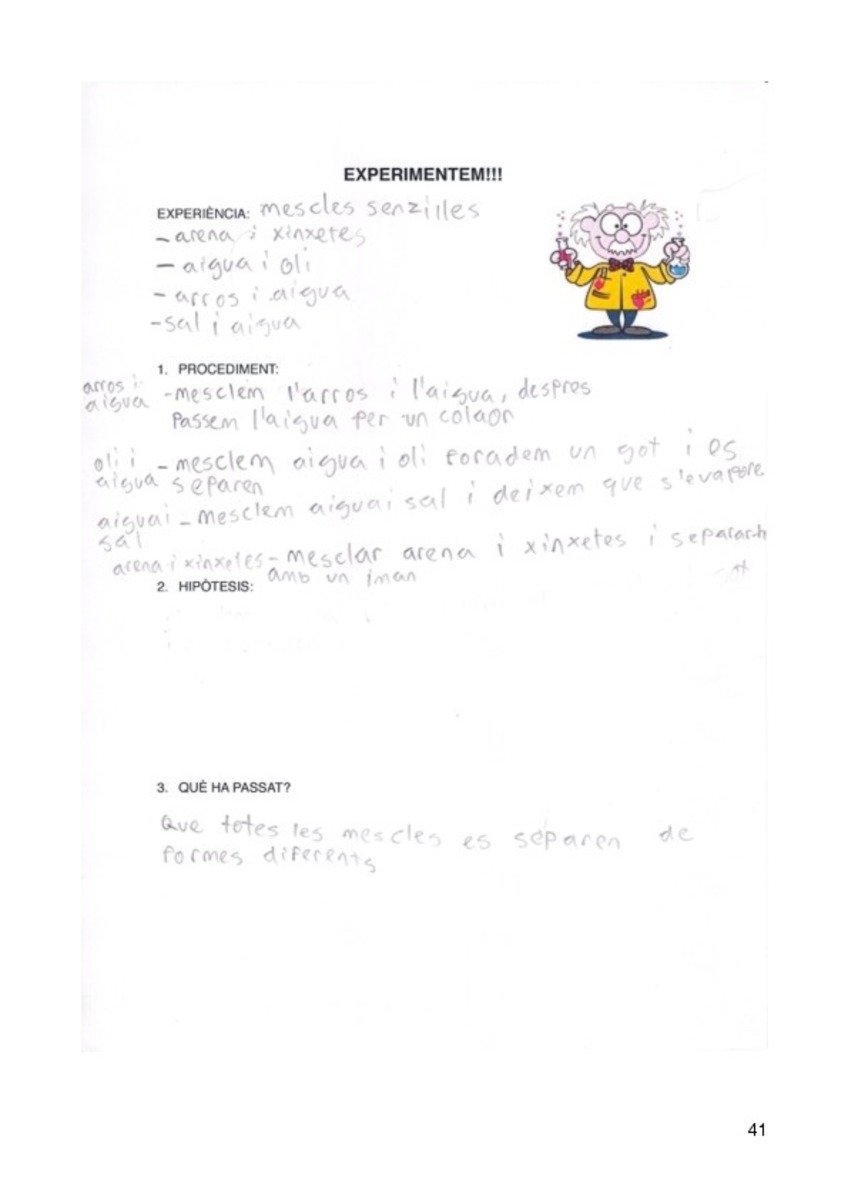 EXPERIMENTEM!!!
EXPERIÈNCIA: mescles senzilles
- arena i xinxetes
- aigua i oli
- arros i aigua
- sal i aigua
1. PROCEDIMENT:
arros i aigua - mesclem l'arros i l'aigua, despres
Passem l'aigua per un colaor
oli i aigua - mesclem aigua i oli foradem un got i es
separen
aigua i sal - mesclem aigua i sal i deixem que s'evapore
arena i xinxetes - mesclar arena i xinxetes i separar
amb un iman
2. HIPÒTESIS:
3. QUÈ HA PASSAT?
Que totes les mescles es separen de
formes diferents
41